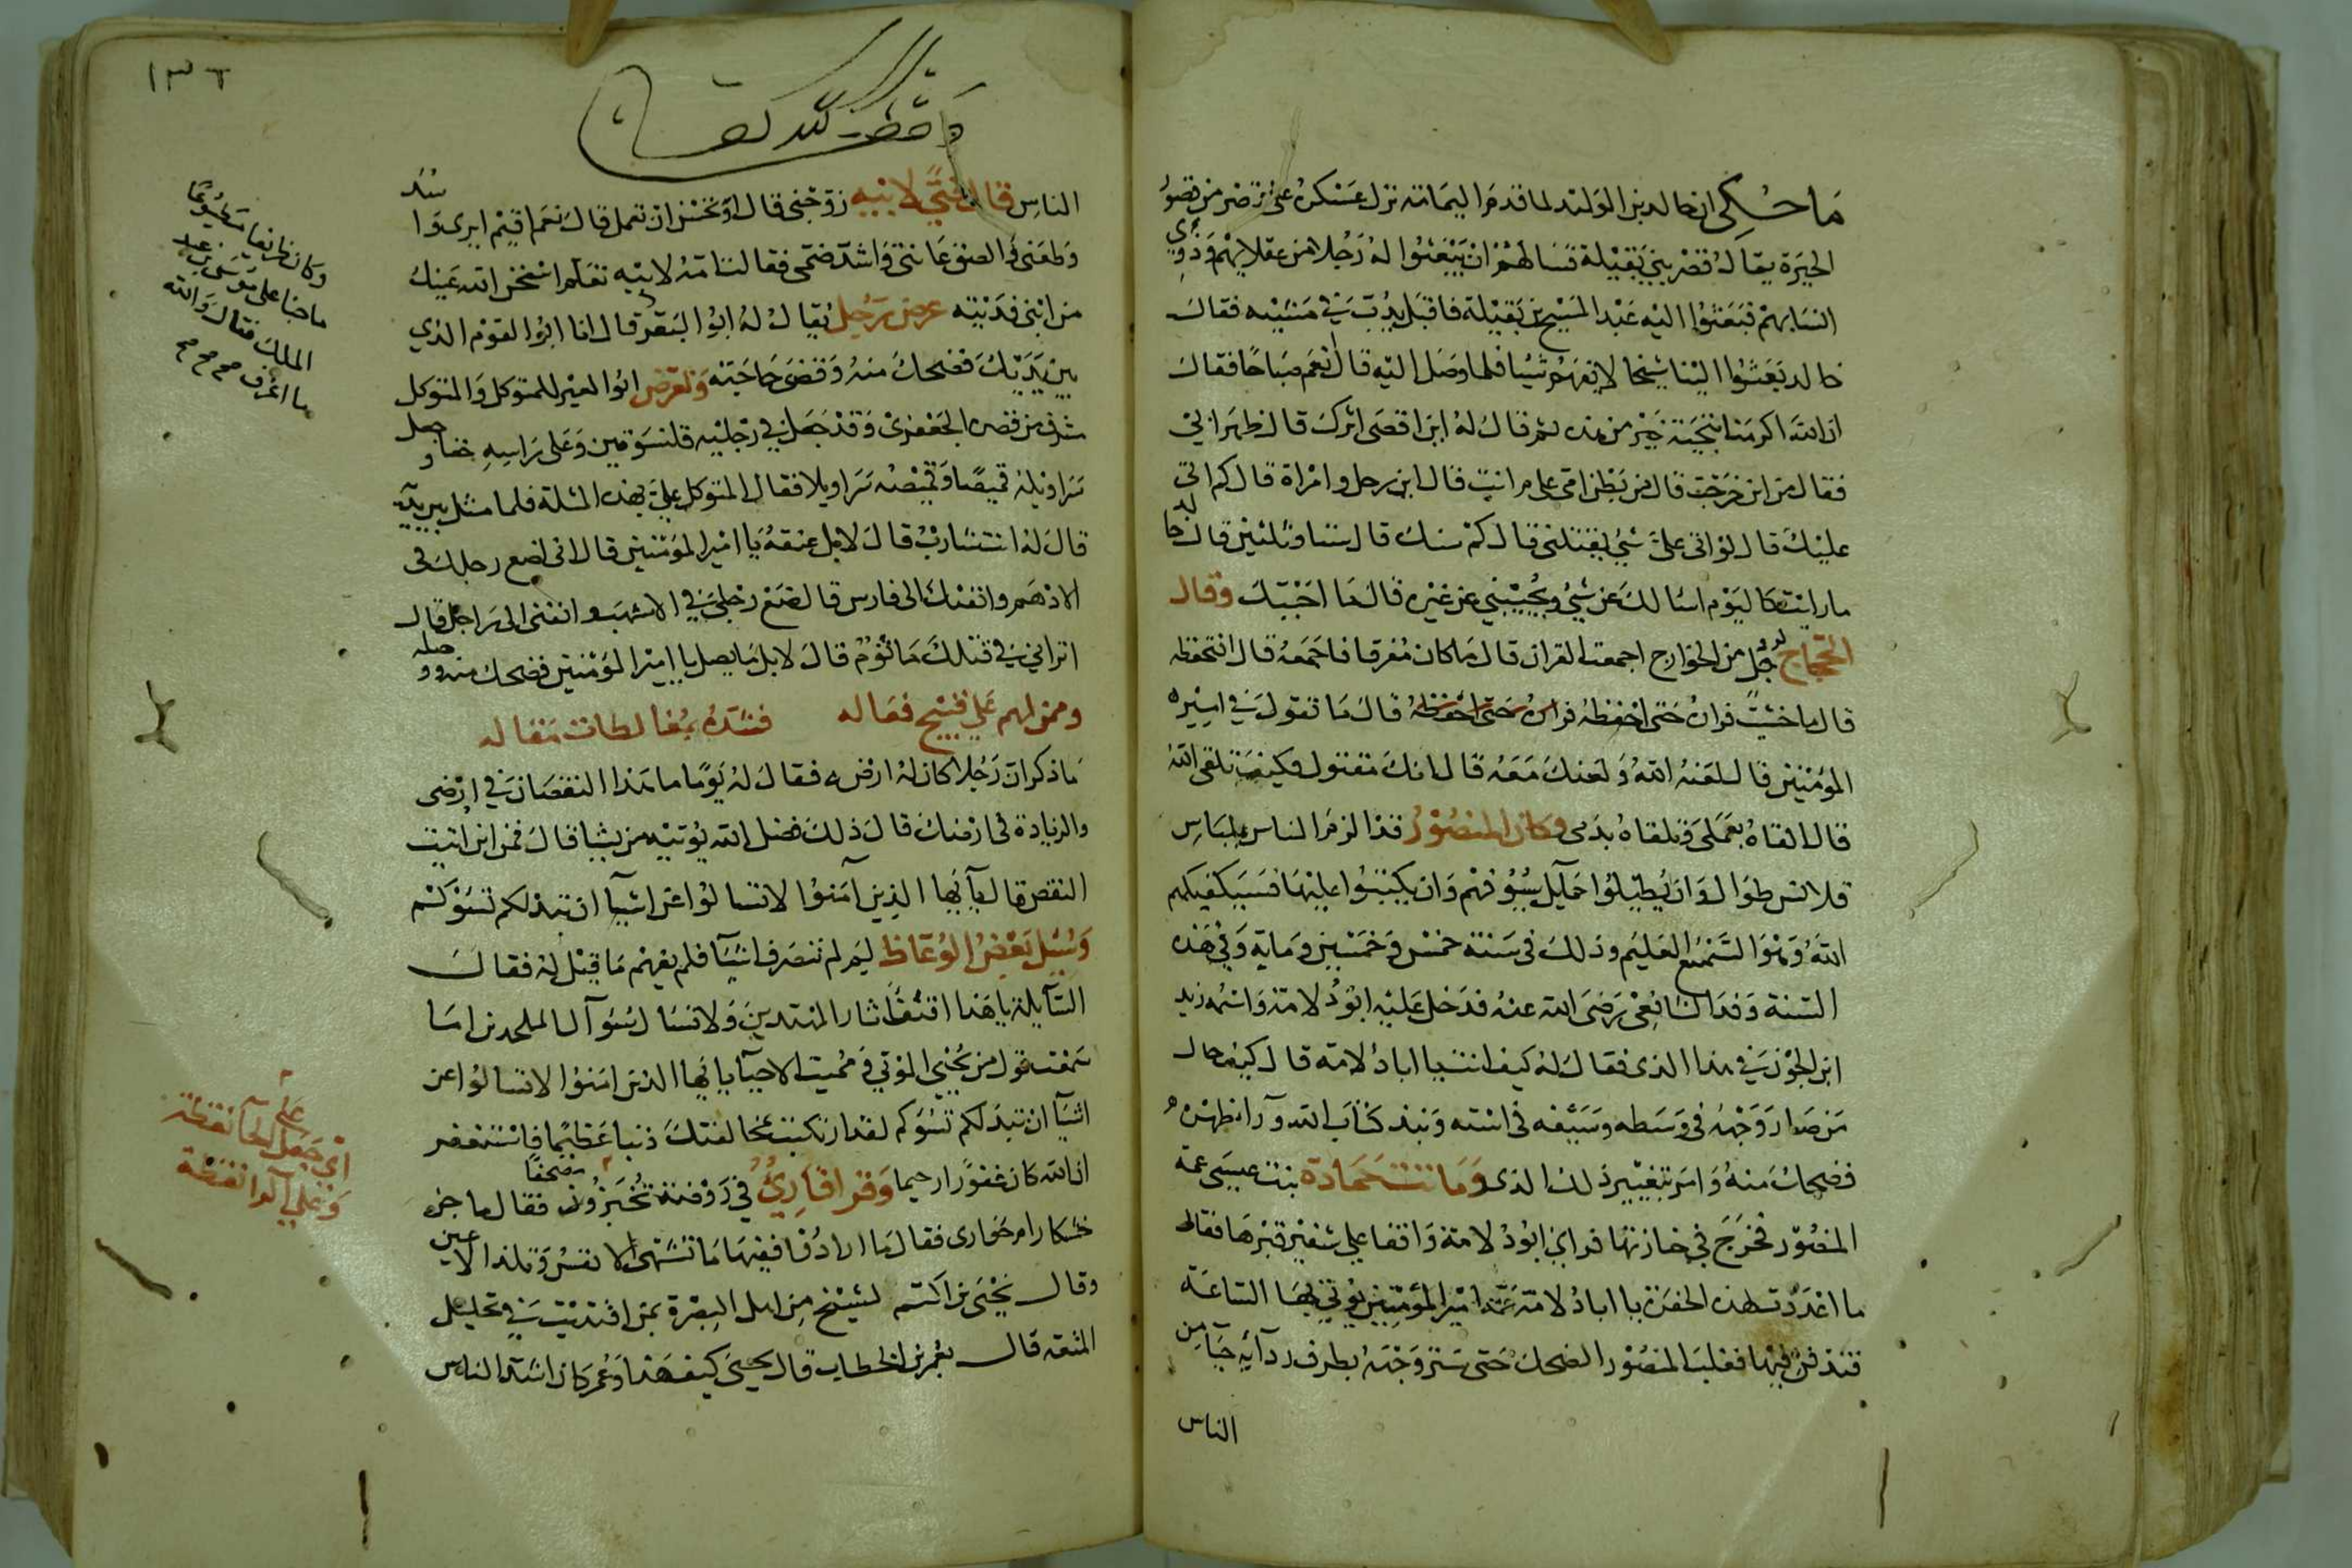 ما حكي ان خالد بن الوليد لما قدم اليمامة نزل عسكره على قصر من قصور
الحيرة يقال له قصر بني بقيلة فسالهم ان يبعثوا له رجلا من عقلايهم وذوي
انسابهم فبعثوا اليه عبد المسيح بن بقيلة فاقبل يدب في مشيته فقال
خالد بعثوا الينا شيخا لا يفهم شيئا فلما وصل اليه قال انعم صباحا فقال
ان الله اكرمنا بتحية خير من هذه ثم قال له اين اقصى اثرك قال ظهر ابي
فقال من اين خرجت قال من بطن امي علي م انت قال ابن رجل وامراة قال كم اتى
عليك قال لو اتى علي شي لقتلني قال كم سنك قال ستا وثلثين قال خالد
ما رايت كاليوم اسالك عن شي وتجيبني عن غيره قال ما اجبتك وقال
الحجاج لرجل من الخوارج اجمعت القران قال ما كان مفرقا فاجمعه قال افتحفظه
قال ما خشيت فراره حتى احفظه قال ما تقول في امير
المؤمنين قال لعنه الله ولعنك معه قال انك مقتول فكيف تلقى الله
قال القاه بعملي وتلقاه بدمي وكان المنصور قد الزم الناس بلباس
قلانس طوال وان يطيلوا حمايل سيوفهم وان يكتبوا عليها فسيكفيكهم
الله وهو السميع العليم وذلك في سنة خمس وخمسين وماية وفي هذه
السنة وفد الشافعي رضي الله عنه فدخل عليه ابو دلامة واسمه زيد
ابن الجون في هذا الذي فقال له كيف انت يا ابا دلامة قال كيف حال
من صار وجهه في وسطه وسيفه في استه ونبذ كتاب الله وراء ظهره
فضحك منه وامر بتغيير ذلك الذي وماتت حمادة بنت عيسى عمة
المنصور فخرج في جنازتها فراي ابو دلامة واقفا علي شفير قبرها فقال
ما اعددت لهذه الحفرة يا ابا دلامة عمة امير المؤمنين يؤتي بها الساعة
فتدفن فيها فغلب المنصور الضحك حتى ستر وجهه بطرف ردآيه حيآ من
الناس
١٣٦
الناس قال فتي لابيه زوجني قال او تحسن ان تعمل قال نعم اقيم ايري وا
من ابني فديته عرض رجل يقال له ابو البقر قال انا ابو القوم الذي
بين يديك فضحك منه وقضى حاجته وتعرض ابو العير للمتوكل والمتوكل
مشرف من قصره الجعفري وقد جعل في رجليه قلنسوتين وعلى راسه خفا وجعل
سراويله قميصا وقميصه سراويلا فقال المتوكل علي بهذه المثلة فلما مثل بين يديه
قال له انت شارب قال لا بل عنفقة يا امير المؤمنين قال اني اضع رجلك في
الادهم وانفيك الى فارس قال ضع رجلي في الاشهب وانفني الى راجل قال
اتراني في قتلك ماثوم قال لا بل ما بصل يا امير المؤمنين فضحك منه ووصله
وممن ليم علي قبيح فعاله فستره بمغالطات مقاله
ما ذكر ان رجلا كان له ارض فقال له يوما ما هذا النقصان في ارضي
والزيادة في ارضك قال ذلك فضل الله يؤتيه من يشا قال فمن اين اتيت
النقص قال يآ ايها الذين آمنوا لا تسالوا عن اشيآ ان تبد لكم تسؤكم
وسئل بعض الوعاظ لم لم تنصرف اشيآ فلم يفهم ما قيل له فقال
السآيلة يا هذا اقتف اثار المهتدين ولا تسال سؤآل الملحدين اما
سمعت قول من يحيي الموتي ومميت الاحيآ يا ايها الذين امنوا لا تسالوا عن
اشيآ ان تبد لكم تسؤكم لقد ارتكبت بمخالفتك ذنبا عظيما فاستغفر
ان الله كان غفورا رحيما وقرا قاري في روضة تخبزون مصحفا فقال ما خبزه
خشكار ام حواري فقال ما ارادوا فيها ما تشتهي الانفس وتلذ الاعين
وقال يحيى بن اكثم لشيخ من اهل البصرة بمن اقتديت في تحليل
المتعة قال بعمر بن الخطاب قال يحيى كيف هذا وعمر كان اشد الناس
وكان
الملك فقال والله
ما اعرف صح صح صح
اي جعل
علي الحآ نقطة
وعلي الرا نقطة